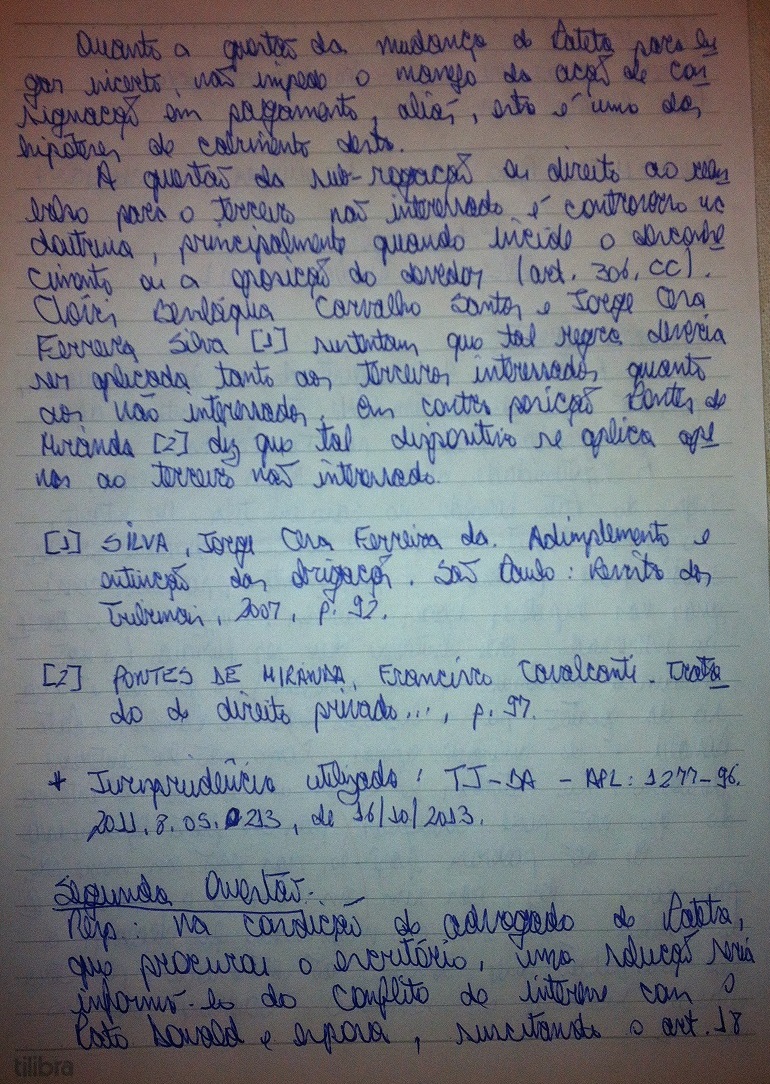 Quanto a questão da mudança do Pateta para lu
gar incerto, não impede o manejo da ação de con
signação em pagamento, aliás, esta é uma das
hipóteses de cabimento desta.
A questão da sub-rogação ou direito ao reem
bolso para o terceiro não interessado é controverso na
doutrina, principalmente quando incide o desconhe
cimento ou a oposição do devedor (art. 306, CC).
Clóvis Beviláqua Carvalho Santos e Jorge Cesa
Ferreira Silva [1] sustentam que tal regra deveria
ser aplicada tanto aos terceiros interessados quanto
aos não interessados. Em contra posição Pontes de
Miranda [2] diz que tal dispositivo se aplica ape
nas ao terceiro não interessado.
[1] SILVA, Jorge Cesa Ferreira da. Adimplemento e
extinção das obrigações. São Paulo: Revista dos
Tribunais, 2007, p. 92.
[2] PONTES DE MIRANDA, Francisco Cavalcanti. Trata
do de direito privado..., p. 97.
* Jurisprudência utilizada: TJ-BA - APL: 1277-96.
2011.8.05.0213, de 16/10/2013.
Segunda Questão.
Resp: Na condição de advogado do Pateta,
que procurou o escritório, uma solução seria
informá-lo do conflito de interesse com o
Pato Donald e esposa, suscitando o art. 18
tilibra